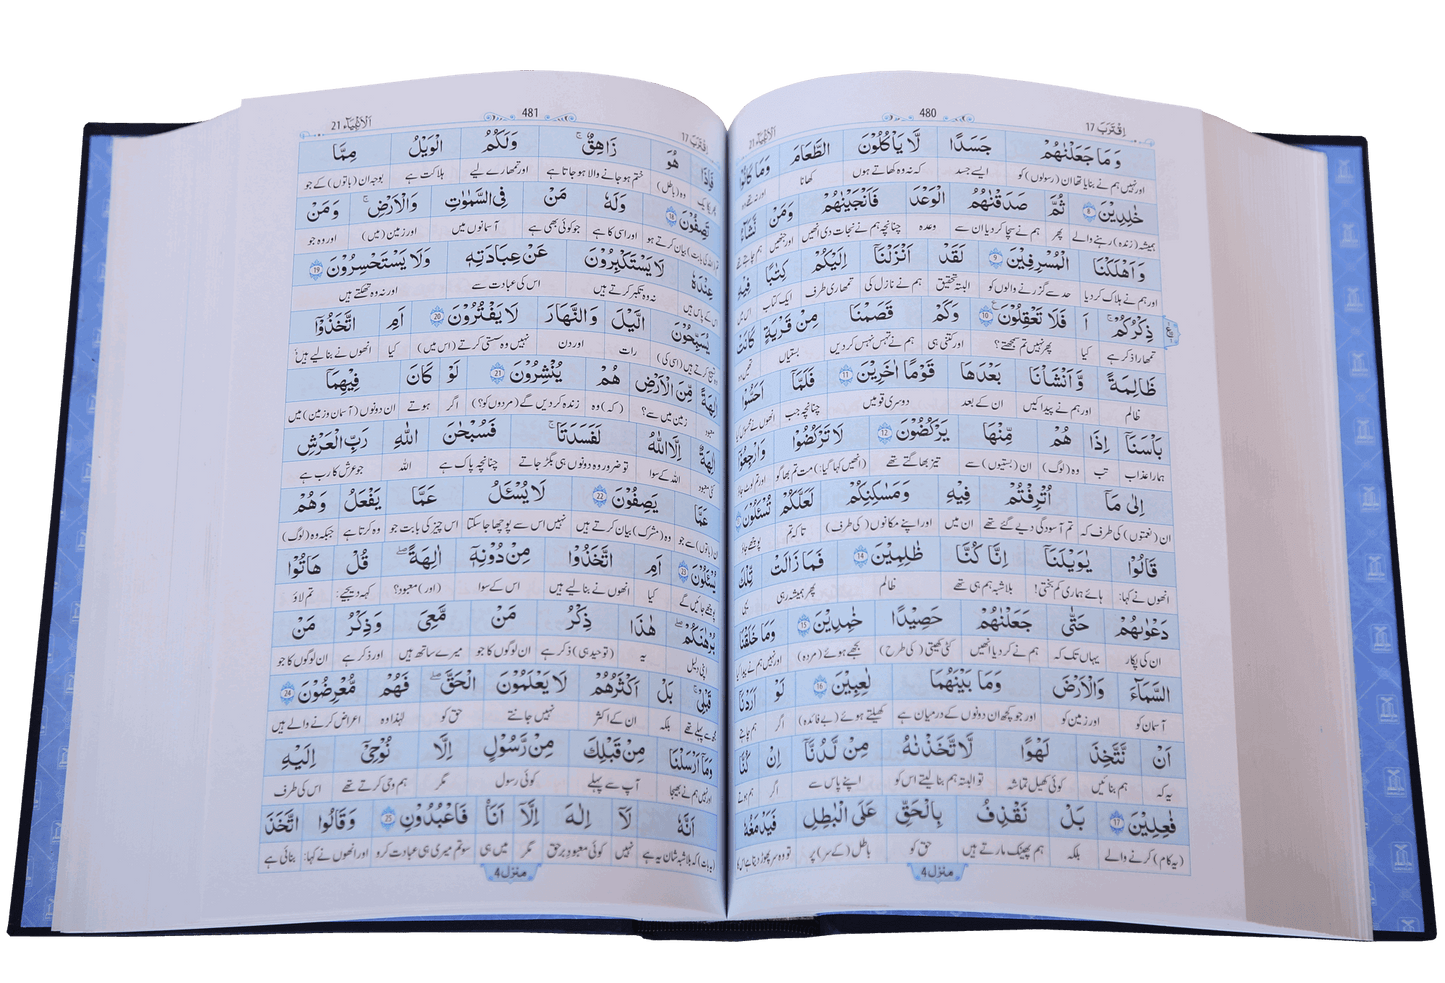 اِقْتَرَبَ 17
480
اَلْاَنْبِيَآء 21
وَ مَا جَعَلْنٰهُمْ جَسَدًا لَّا يَاْكُلُوْنَ الطَّعَامَ وَ مَا كَانُوْا
اور نہیں ہم نے بنایا تھا ان (رسولوں) کو ایسے جسد کہ نہ وہ کھاتے ہوں کھانا اور نہ تھے وہ
خٰلِدِيْنَ 8 ثُمَّ صَدَقْنٰهُمُ الْوَعْدَ فَاَنْجَيْنٰهُمْ وَمَنْ نَّشَآءُ
ہمیشہ (زندہ) رہنے والے پھر ہم نے سچا کر دیا ان سے وعدہ چنانچہ ہم نے نجات دی انھیں اور جنھیں ہم چاہتے تھے
وَ اَهْلَكْنَا الْمُسْرِفِيْنَ 9 لَقَدْ اَنْزَلْنَآ اِلَيْكُمْ كِتٰبًا فِيْهِ
اور ہم نے ہلاک کر دیا حد سے گزرنے والوں کو البتہ تحقیق ہم نے نازل کی تمھاری طرف ایک کتاب اس میں
ذِكْرُكُمْ ۚ اَ فَلَا تَعْقِلُوْنَ 10 وَكَمْ قَصَمْنَا مِنْ قَرْيَةٍ كَانَتْ
تمھارا ذکر ہے کیا پھر نہیں تم سمجھتے؟ اور کتنی ہی ہم نے تہس نہس کر دیں بستیاں
ظَالِمَةً وَّ اَنْشَاْنَا بَعْدَهَا قَوْمًا اٰخَرِيْنَ 11 فَلَمَّآ اَحَسُّوْا
ظالم اور ہم نے پیدا کیں ان کے بعد دوسری قومیں چنانچہ جب انھوں نے
بَاْسَنَآ اِذَا هُمْ مِّنْهَا يَرْكُضُوْنَ 12 لَا تَرْكُضُوْا وَارْجِعُوْٓا
ہمارا عذاب تب وہ (لوگ) ان (بستیوں) سے تیز بھاگتے تھے (انھیں کہا گیا:) مت تم بھاگو اور تم لوٹ جاؤ
اِلٰى مَآ اُتْرِفْتُمْ فِيْهِ وَ مَسٰكِنِكُمْ لَعَلَّكُمْ تُسْـَٔلُوْنَ
ان (نعمتوں) کی طرف کہ تم آسودگی دیے گئے تھے ان میں اور اپنے مکانوں (کی طرف) تا کہ تم پوچھے جاؤ
قَالُوْا يٰوَيْلَنَآ اِنَّا كُنَّا ظٰلِمِيْنَ 14 فَمَا زَالَتْ تِّلْكَ
انھوں نے کہا: ہائے ہماری کم بختی! بلاشبہ ہم ہی تھے ظالم پھر ہمیشہ رہی یہی
دَعْوٰىهُمْ حَتّٰى جَعَلْنٰهُمْ حَصِيْدًا خٰمِدِيْنَ 15 وَمَا خَلَقْنَا
ان کی پکار یہاں تک کہ ہم نے کر دیا انھیں کٹی کھیتی (کی طرح) بجھے ہوئے (مردہ) اور نہیں ہم نے پیدا کیا
السَّمَآءَ وَ الْاَرْضَ وَ مَا بَيْنَهُمَا لٰعِبِيْنَ 16 لَوْ اَرَدْنَآ
آسمان کو اور زمین کو اور جو کچھ ان دونوں کے درمیان ہے کھیلتے ہوئے (بے فائدہ) اگر ہم چاہتے
اَنْ نَّتَّخِذَ لَهْوًا لَّاتَّخَذْنٰهُ مِنْ لَّدُنَّآ اِنْ كُنَّا
یہ کہ ہم بنائیں کوئی کھیل تماشہ تو البتہ ہم بنا لیتے اس کو اپنے پاس سے اگر ہم ہوتے
فٰعِلِيْنَ 17 بَلْ نَقْذِفُ بِالْحَقِّ عَلَى الْبَاطِلِ فَيَدْمَغُهٗ
(یہ کام) کرنے والے بلکہ ہم پھینک مارتے ہیں حق کو باطل (کے سر) پر تو وہ سر پھوڑ دیتا ہے اس کا
منزل 4
اِقْتَرَبَ 17
481
اَلْاَنْبِيَآء 21
فَاِذَا هُوَ زَاهِقٌ ۚ وَلَكُمُ الْوَيْلُ مِمَّا
وہ (باطل) ختم ہو جانے والا ہو جاتا ہے اور تمھارے لیے ہلاکت ہے بوجہ ان (باتوں) کے جو
تَصِفُوْنَ 18 وَلَهٗ مَنْ فِي السَّمٰوٰتِ وَالْاَرْضِ ۚ وَمَنْ
بیان کرتے ہو اور اسی کا ہے جو کوئی بھی ہے آسمانوں میں اور زمین (میں) اور وہ جو
عِنْدَهٗ لَا يَسْتَكْبِرُوْنَ عَنْ عِبَادَتِهٖ وَلَا يَسْتَحْسِرُوْنَ 19
اس کے پاس ہیں نہ وہ تکبر کرتے ہیں اس کی عبادت سے اور نہ وہ تھکتے ہیں
يُسَبِّحُوْنَ الَّيْلَ وَالنَّهَارَ لَا يَفْتُرُوْنَ 20 اَمِ اتَّخَذُوْٓا
تسبیح کرتے ہیں (اسی کی) رات اور دن نہیں وہ سستی کرتے (اس میں) کیا انھوں نے بنا لیے ہیں
اٰلِهَةً مِّنَ الْاَرْضِ هُمْ يُنْشِرُوْنَ 21 لَوْ كَانَ فِيْهِمَآ
معبود زمین میں سے؟ (کہ) وہ زندہ کر دیں گے (مردوں کو؟) اگر ہوتے ان دونوں (آسمان و زمین) میں
اٰلِهَةٌ اِلَّا اللّٰهُ لَفَسَدَتَا ۚ فَسُبْحٰنَ اللّٰهِ رَبِّ الْعَرْشِ
کئی معبود اللہ کے سوا تو ضرور وہ دونوں ہی بگڑ جاتے چنانچہ پاک ہے اللہ جو عرش کا رب ہے
عَمَّا يَصِفُوْنَ 22 لَا يُسْـَٔلُ عَمَّا يَفْعَلُ وَهُمْ
ان (باتوں) سے جو وہ (مشرک) بیان کرتے ہیں نہیں اس سے پوچھا جا سکتا اس چیز کی بابت جو وہ کرتا ہے جبکہ وہ (لوگ)
يُسْـَٔلُوْنَ 23 اَمِ اتَّخَذُوْا مِنْ دُوْنِهٖٓ اٰلِهَةً ۖ قُلْ هَاتُوْا
پوچھے جائیں گے کیا انھوں نے بنا لیے ہیں اس کے سوا (اور) معبود؟ کہہ دیجیے: تم لاؤ
بُرْهَانَكُمْ ۖ هٰذَا ذِكْرُ مَنْ مَّعِيَ وَذِكْرُ مَنْ
اپنی دلیل یہ (توحید ہی) ذکر ہے ان لوگوں کا جو میرے ساتھ ہیں اور ذکر ہے ان لوگوں کا جو
قَبْلِيْ ۗ بَلْ اَكْثَرُهُمْ لَا يَعْلَمُوْنَ الْحَقَّ ۖ فَهُمْ مُّعْرِضُوْنَ 24
مجھ سے پہلے تھے بلکہ ان کے اکثر نہیں جانتے حق کو لہٰذا وہ اعراض کرنے والے ہیں
وَمَآ اَرْسَلْنَا مِنْ قَبْلِكَ مِنْ رَّسُوْلٍ اِلَّا نُوْحِيْٓ اِلَيْهِ
اور نہیں ہم نے بھیجا آپ سے پہلے کوئی رسول مگر ہم وحی کرتے تھے اس کی طرف
اَنَّهٗ لَآ اِلٰهَ اِلَّآ اَنَا فَاعْبُدُوْنِ 25 وَقَالُوا اتَّخَذَ
(یہ بات) کہ بلاشبہ شان یہ ہے نہیں کوئی معبود برحق مگر میں ہی سو تم میری ہی عبادت کرو اور انھوں نے کہا: بنائی ہے
منزل 4